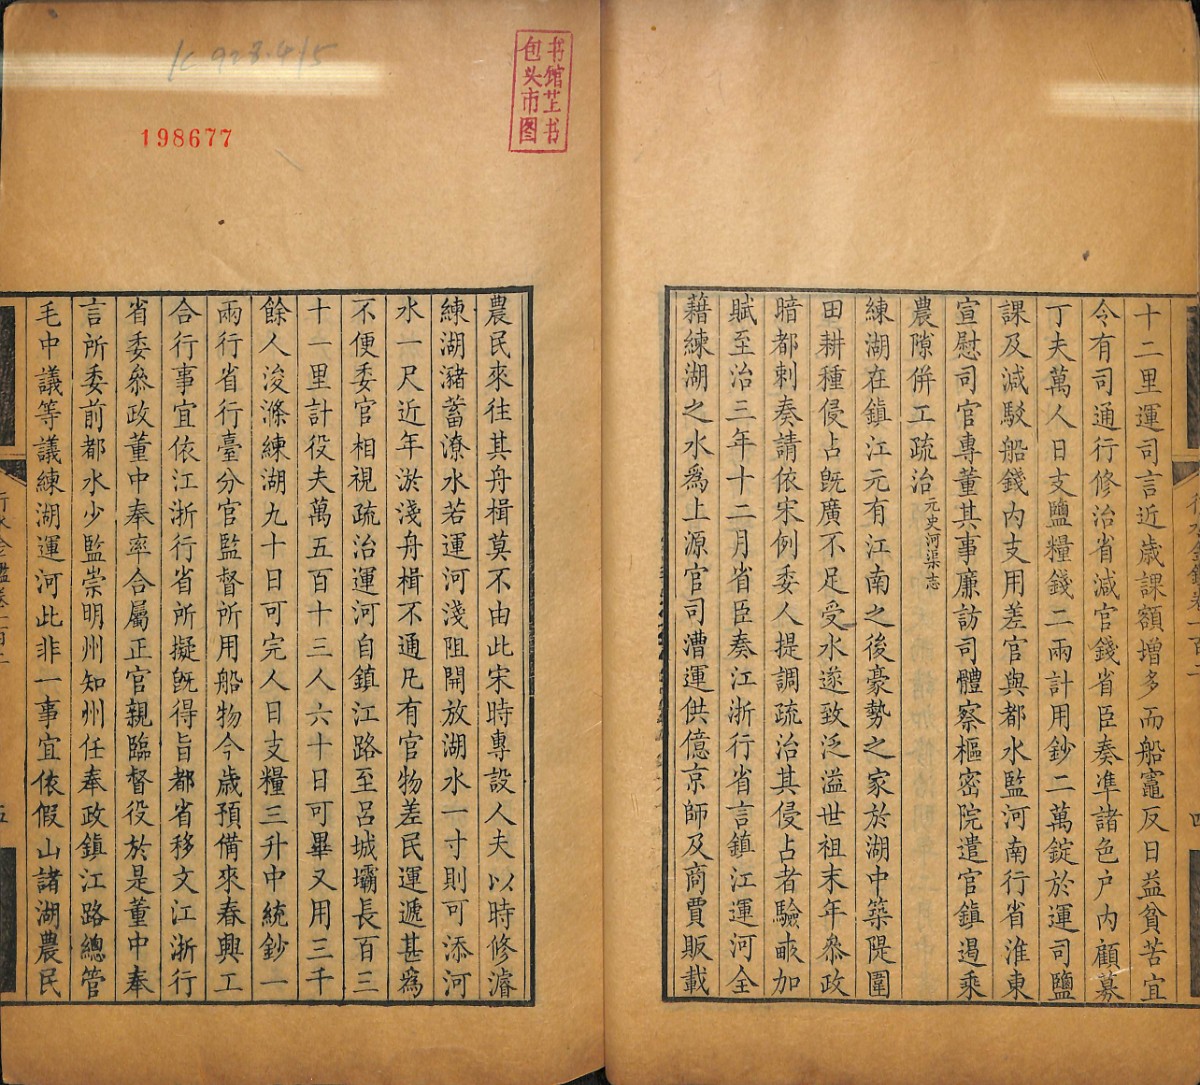 十二里運司言近歲課額增多而船竈反日益貧苦宜
令有司通行修治省減官錢省臣奏準諸色户内顧募
丁夫萬人日支鹽糧錢二兩計用鈔二萬錠於運司鹽
課及減駁船錢内支用差官與都水監河南行省淮東
宣慰司官專董其事廉訪司體察樞密院遣官鎮遏乘
農隙併工疏治元史河渠志
練湖在鎮江元有江南之後豪勢之家於湖中築隄圍
田耕種侵占旣廣不足受水遂致泛溢世祖末年叅政
暗都刺奏請依宋例委人提調疏治其侵占者驗畝加
賦至治三年十二月省臣奏江浙行省言鎮江運河全
藉練湖之水爲上源官司漕運供億京師及商賈販載
農民來往其舟楫莫不由此宋時專設人夫以時修濬
練湖瀦蓄潦水若運河淺阻開放湖水一寸則可添河
水一尺近年淤淺舟楫不通凡有官物差民運遞甚爲
不便委官相視疏治運河自鎮江路至呂城壩長百三
十一里計役夫萬五百十三人六十日可畢又用三千
餘人浚滌練湖九十日可完人日支糧三升中統鈔一
兩行省行臺分官監督所用船物今歲預備來春興工
合行事宜依江浙行省所擬旣得旨都省移文江浙行
省委叅政董中奉率合屬正官親臨督役於是董中奉
言所委前都水少監崇明州知州任奉政鎮江路總管
毛中議等議練湖運河此非一事宜依假山諸湖農民
五
书馆芏书
包头市图
198677